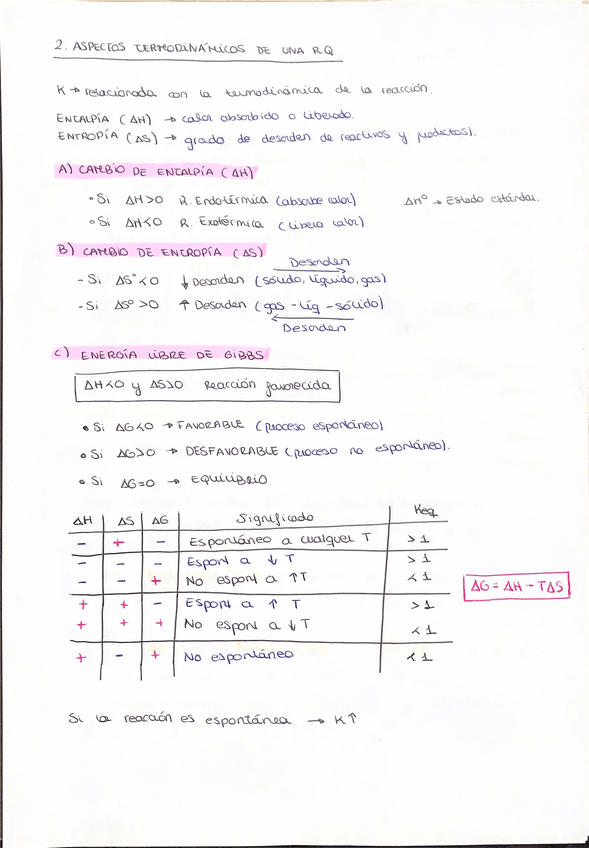 2. ASPECTOS TERMODINÁMICOS DE UNA RQ
K → relacionada con la termodinámica de la reacción.
ENTALPÍA (ΔH) → calor absorbido o liberado.
ENTROPÍA (ΔS) → grado de desorden de reactivos y productos).
A) CAMBIO DE ENTALPÍA (ΔH)
• Si ΔH>0 R. Endotérmica (absorbe calor) ΔHº → Estado estándar.
• Si ΔH<0 R. Exotérmica (libera calor)
B) CAMBIO DE ENTROPÍA (ΔS)
Desorden
- Si ΔSº<0 ↓ Desorden (sólido, líquido, gas)
- Si ΔSº>0 ↑ Desorden (gas - líq - sólido)
Desorden
C) ENERGÍA LIBRE DE GIBBS
ΔH<0 y ΔS>0 Reacción favorecida
• Si ΔG<0 → FAVORABLE (proceso espontáneo)
• Si ΔG>0 → DESFAVORABLE (proceso no espontáneo).
• Si ΔG=0 → EQUILIBRIO
ΔH ΔS ΔG Significado Keq
- + - Espontáneo a cualquer T >1
- - - Espont a ↓ T >1
- - + No espont a ↑T <1
ΔG = ΔH - TΔS
+ + - Espont a ↑ T >1
+ + + No espont a ↓T <1
+ - + No espontáneo <1
Si la reacción es espontánea → K↑